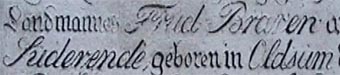 Landmannes Frud. Braren a
Süderende, geboren in Oldsum